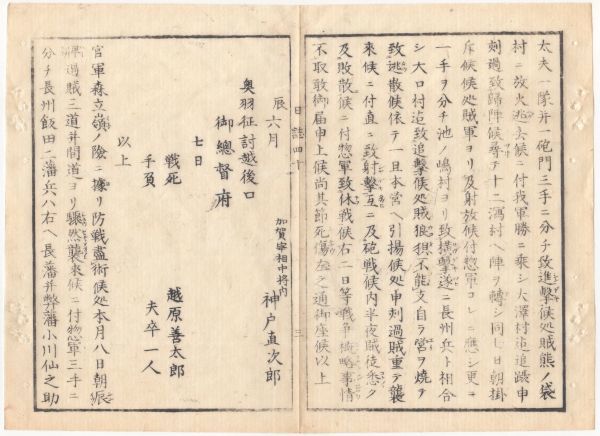 太夫一隊并一砲門三手ニ分チ致進撃候処賊熊ノ袋
村ニ放火迯去候ニ付我軍勝ニ乗シ大澤村迠追躡申
刻過致歸陣候尋テ十二潟村ヘ陣ヲ轉シ同七日朝掛
斥候候処賊軍ヨリ及射放候付惣軍コレニ應シ更ニ
一手ヲ分チ池ノ嶋村ヨリ致横撃遂ニ長州兵ト相合
シ大口村迠致追撃候処賊狼狽不能支自ラ営ヲ焼キ
致迯散候依テ一旦本営ヘ引揚候処申刻過賊重テ襲
来候ニ付直ニ致射撃互ニ及砲戦候内半夜賊徒悉ク
及敗散候ニ付惣軍致休戦候右二日等戦争概略事情
不取敢御届申上候尚其節死傷左之通御座候以上
加賀宰相中将内
神戸直次郎
辰六月
日誌四十
三
奥羽征討越後口
御總督府
七日
戦死 越原善太郎
手負 夫卒一人
以上
官軍森立嶺ノ險ニ據リ防戦盡術候処本月八日朝振
過賊三道并間道ヨリ驟然襲来候ニ付惣軍三手ニ
分チ長州飯田二藩兵ハ右ヘ長藩并弊藩小川仙之助